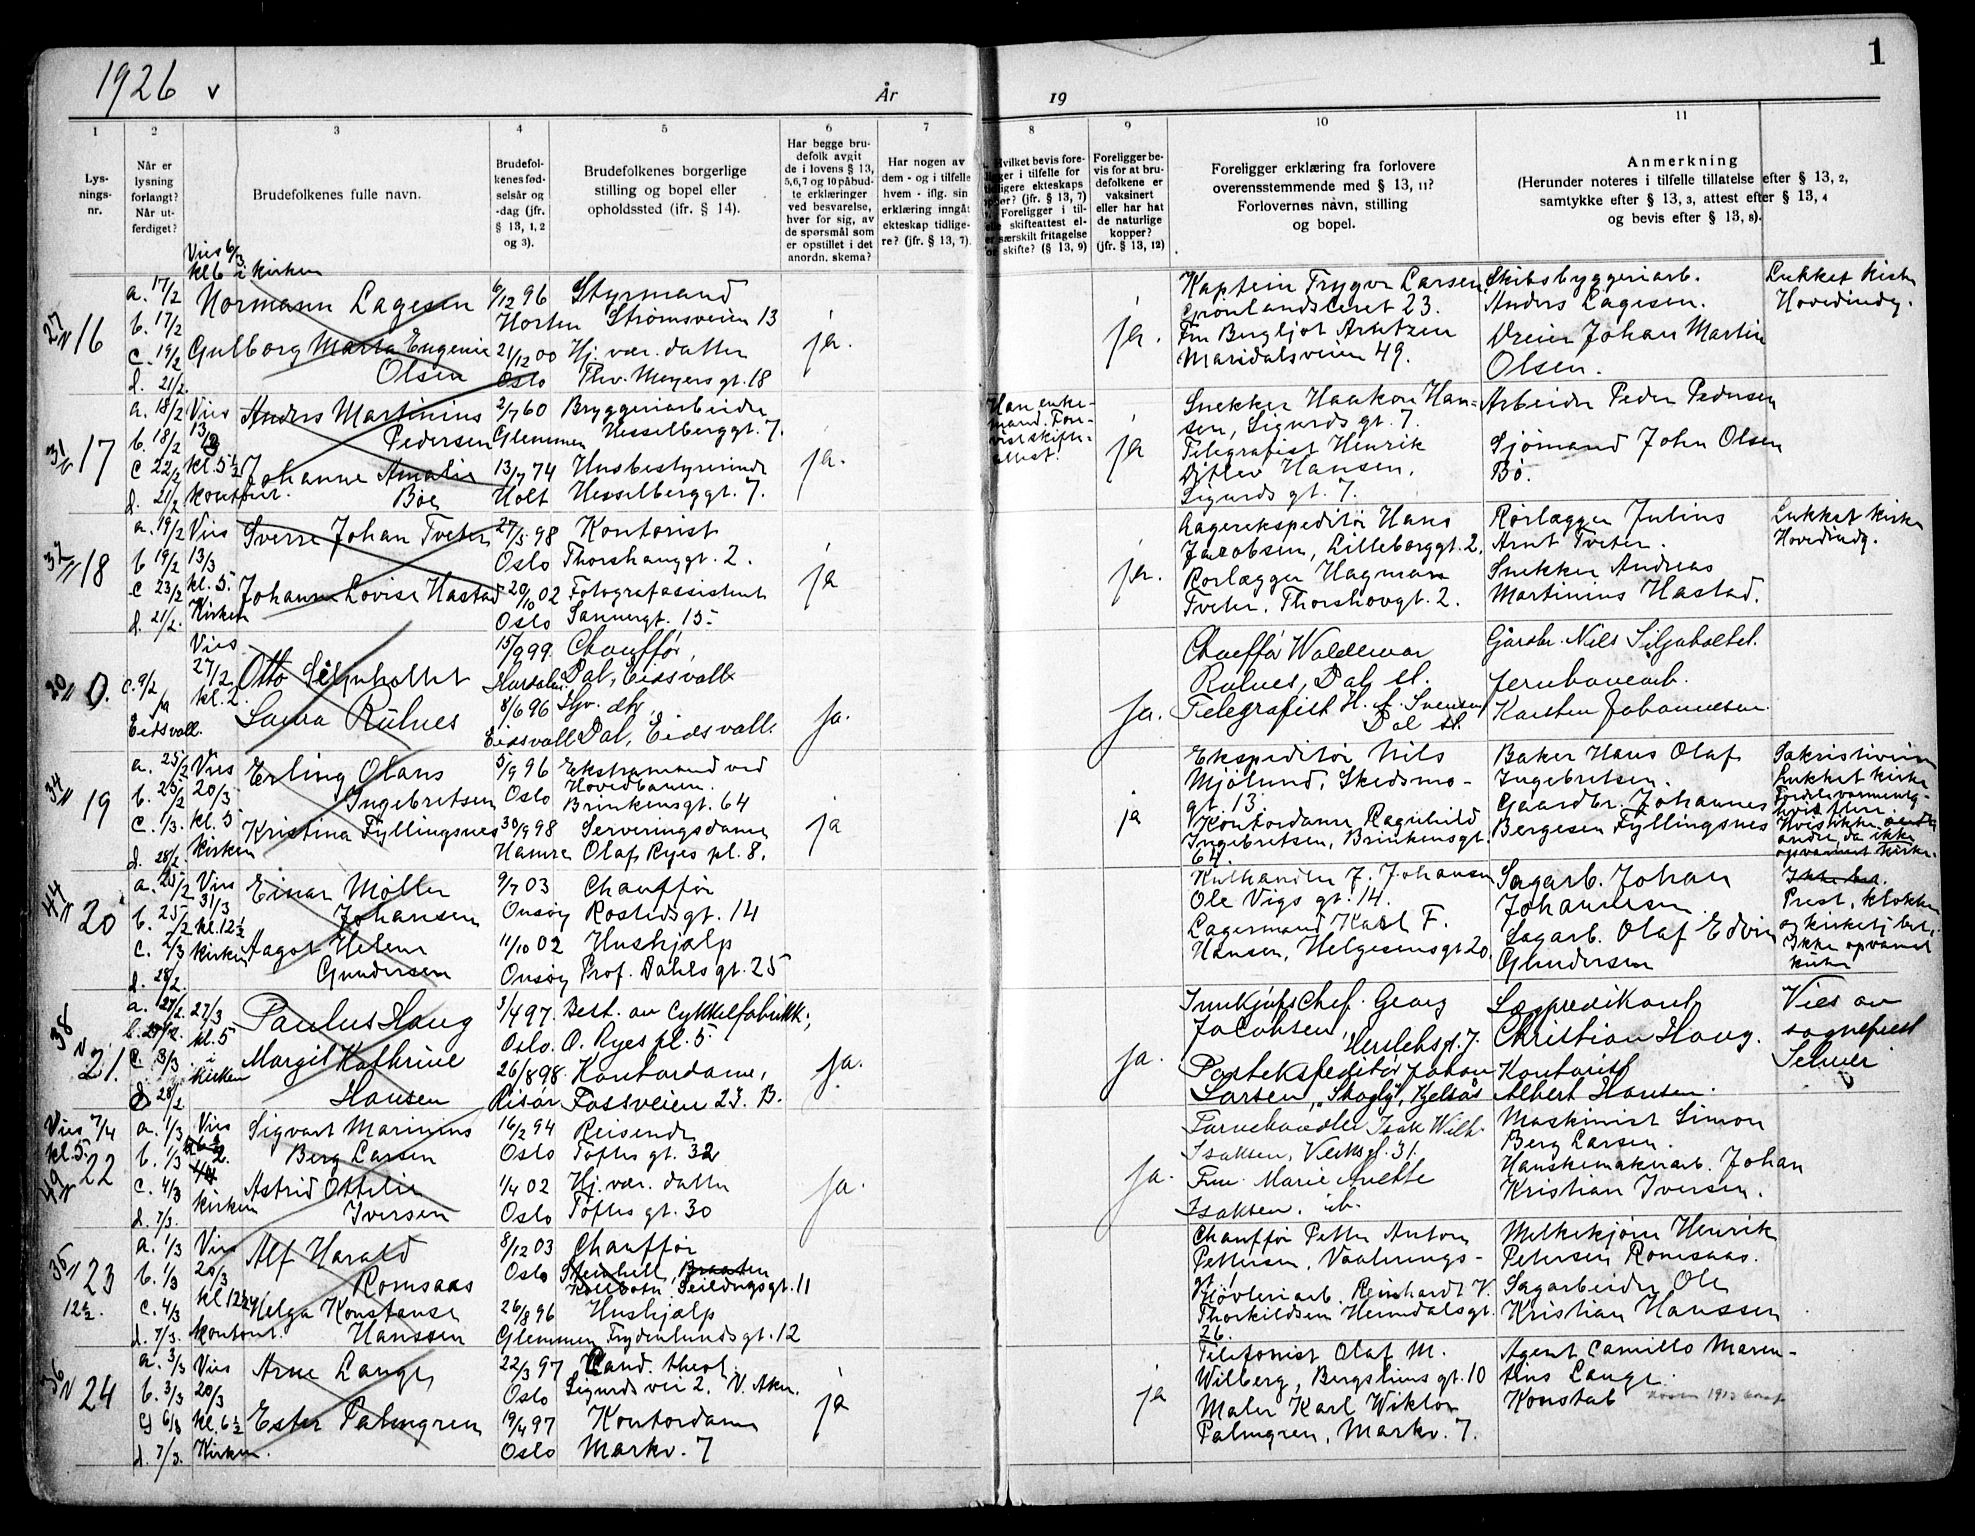 1926 v
År
19
1
1
2
3
4
5
6
7
8
9
10
11
Lys-
nings-
nr.
Når er
lysning
forlangt?
Når ut-
ferdiget?
Brudefolkenes fulle navn.
Brudefol-
kenes fød-
selsår og
-dag (jfr.
§ 13, 1, 2
og 3).
Brudefolkenes borgerlige
stilling og bopel eller
opholdssted (ifr. § 14).
Har begge bru-
defolk avgit
de i lovens § 13,
5,6,7 og 10 påbud-
te erklæringer
ved besvarelse,
hver for sig, av
de spørsmål som
er opstillet i det
anordn. skema?
Har nogen av
dem - og i tilfelle
hvem - iflg. sin
erklæring inngått
ekteskap tidlige-
re? (jfr. § 13, 7).
Hvilket bevis fore-
ligger i tilfelle for
tidligere ekteskaps
opphør? (jfr. § 13, 7)
Foreligger i til-
felle skifteattest el-
er særskilt fritagelse
for skifte? (§ 13, 9)
Foreligger be-
vis for at bru-
defolkene er
vaksinert
eller har hat
de naturlige
kopper?
(jfr. § 13, 12)
Foreligger erklæring fra forlovere
overensstemmende med § 13, 11?
Forlovernes navn, stilling
og bopel.
Anmerkning
(Herunder noteres i tilfelle tillatelse efter § 13, 2,
samtykke efter § 13, 3, attest efter § 13, 4
og bevis efter § 13, 8).
16
Vies 6/3
kl 6 i kirken
a. 17/2
b. 17/2
c. 19/2
d. 21/2
Normann Lagesen
Gulborg Marta Eugenie
Olsen
6/12 96
Horten
21/12 00
Oslo
Styrmand
Strømsveien 13
Hj. vær. datter
Thv. Meyers gt. 18
ja.
ja.
Kaptein Trygve Larsen,
Grønlandsleret 23.
Fru Bergljot Arntzen
Maridalsveien 49.
Skibsbyggeriarb.
Anders Lagesen.
Dreier Johan Martin
Olsen.
Lukket kirke
Hovedindg.
17
a. 18/2
b. 18/2
c 22/2
d. 21/2
Vies
kl. 5 1/2
kontoret.
Anders Martinius
Pedersen
Johanne Amalie
Bøe
2/7 60
Glemmen
13/7 74
Holt
Bryggeriarbeider
Hesselberggt. 7.
Husbestyrerinde
Hesselberggt. 7.
ja.
Han enke-
mand. Fore-
vist skifte-
attest.
ja
Snekker Haakon Han-
sen, Sigurds gt. 7.
Telegrafist Henrik
Ditlev Hansen,
Sigurds gt. 7.
Arbeider Peder Pedersen
Sjömand John Olsen
Bö.
18
a. 19/2
b 19/2
c 23/2
d. 21/2.
Vies
13/3
kl. 5.
Kirken
Sverre Johan Tveter
Johanne Lovise Hastad
27/5 98
Oslo
20/10 02
Oslo
Kontorist
Thorshauggt. 2.
Fotografassistent
Sannergt. 15
ja
ja.
Lagerekspeditør Hans
Jacobsen, Lilleborggt. 2.
Rörlægger Hagmann
Tveter. Thorshovgt. 2.
Rörlægger Julius
Arnt Tveter.
Snekker Andreas
Martinius Hastad.
Lukket kirke
Hovedindg.
0.
c. 9/2
fra
Eidsvoll.
Vies
27/2
kl. 2.
Otto Siljuholtet
Laura Rulnes
15/9 99
8/6 96
Eidsvoll
Chauffør,
Dal, Eidsvoll
Hjv. dtr,
Dal, Eidsvoll.
ja.
ja.
Chauffør Waldemar
Rulnes, Dal st.
Telegrafist H. A. Svensen
Dal st.
Gaardbr. Nils Siljuholtet.
Jernbanearb.
Karsten Johannesen.
19
a. 25/2
b. 25/2
c. 1/3.
d. 28/2.
Vies
20/3
kl. 5
kirken
Erling Olaus
Ingebretsen
Kristina Fyllingsnes
5/9 96
Oslo
30/9 98
Hamre
Ekstramand ved
Hovedbanen.
Brinkensgt. 64
Serveringsdame
Olaf Ryes pl. 8.
ja
ja
Ekspeditør Nils
Mjölund, Skedsmo-
gt. 13.
Kontordame Ragnhild
Ingebretsen, Brinkensgt.
64.
Baker Hans Olaf
Ingebretsen.
Gaardbr. Johannes
Bergesen Fyllingsnes
Sakristiveien
Lukket kirke
20
a. 25/2
b. 25/2
c. 2/3
d. 28/2.
Vies
31/3
kl. 12 1/2
kirken
Einar Møller
Johansen
Aagot Helene
Gundersen
9/7 03
Onsøy
11/10 02
Onsøy
Chauffør
Rostedsgt. 14
Hushjælp
Prof. Dahls gt. 25
Kulhandler J. Johansen
Ole Vigs gt. 14.
Lagermand Karl F.
Hansen, Helgesensgt 20.
Sagarb. Johan
Johannesen
Sagarb. Olaf Edvin
Gundersen
Ikke bet.
Prest, klokker
og kirketj bet.
Ikke opvarmet
kirke
21.
a. 27/2.
c. 3/3
d 28/2
27/3
kl. 5
i
kirken
Paulus Haug
Margit Kathrine
Hansen
3/4 97.
Oslo.
26/8 98.
Risør
Best. av cykkelfabrikk,
O. Ryes pl. 5
Kontordame,
Fossveien 23. B.
ja.
ja.
Innkjøpschef Georg
Jacobsen,
Herslebsgt. 7.
Postekspeditør Johan
Larsen, "Skogly", Kjelsås
Lægpredikant
Christian Haug.
Kontorist
Albert Hansen.
Vies av
sogneprest
Selmer
22
Vies 7/4
kl. 5.
a. 1/3
b. 1/3
c. 4/3
d. 7/3.
Vies
kirken
Sigvart Marinius
Berg Larsen
Astrid Ottilie
Iversen
16/2 94
Oslo
1/4 02
Oslo
Reisende
Toftes gt. 32
Hj. vær. datter
Toftes gt. 30
ja.
ja.
Farvehandler Isak Wilh.
Isaksen, Verksgt. 31.
Fru Marie Anette
Isaksen. ib.
Maskinist Simon
Berg Larsen.
Hanskemakerarb. Johan
Kristian Iversen.
23
12 1/2.
a. 1/3
b. 1/3
c. 4/3
d. 7/3.
Vies
20/3
kl 12 1/2
kontoret.
Alf Harald
Romsaas
Helga Konstanse
Hanssen
8/12 03
Oslo
26/8 96
Glemmen
Chauffør
Steinhell, Braaten
Kolbotn, Seildugsgt. 11
Hushjælp
Frydenlundsgt. 12
Chauffør Petter Anton
Pettersen, Vaalerengs-
gt,
Høvleriarb. Reinhardt V.
Thorkildsen Heimdalsgt.
26.
Melkekjører Henrik
Petersen Romsaas.
Sagarbeider Ole
Kristian Hanssen
24
a. 3/3
b. 3/3
c 6/3
d. 7/3.
Vies
20/3
kl. 6 1/2
Kirken.
Arne Lange
Ester Palmgren
22/3 97
Oslo
19/4 97
Oslo
Cand. theol.
Sigurds vei 2, V. Aker.
Kontordame
Markv. 7
ja
ja
Telefonist Olaf M.
Wilberg, Bergsliens gt. 10
Maler Karl Wiktor
Palmgren, Markv. 7.
Agent Camillo Maren-
tius Lange.
Konstab